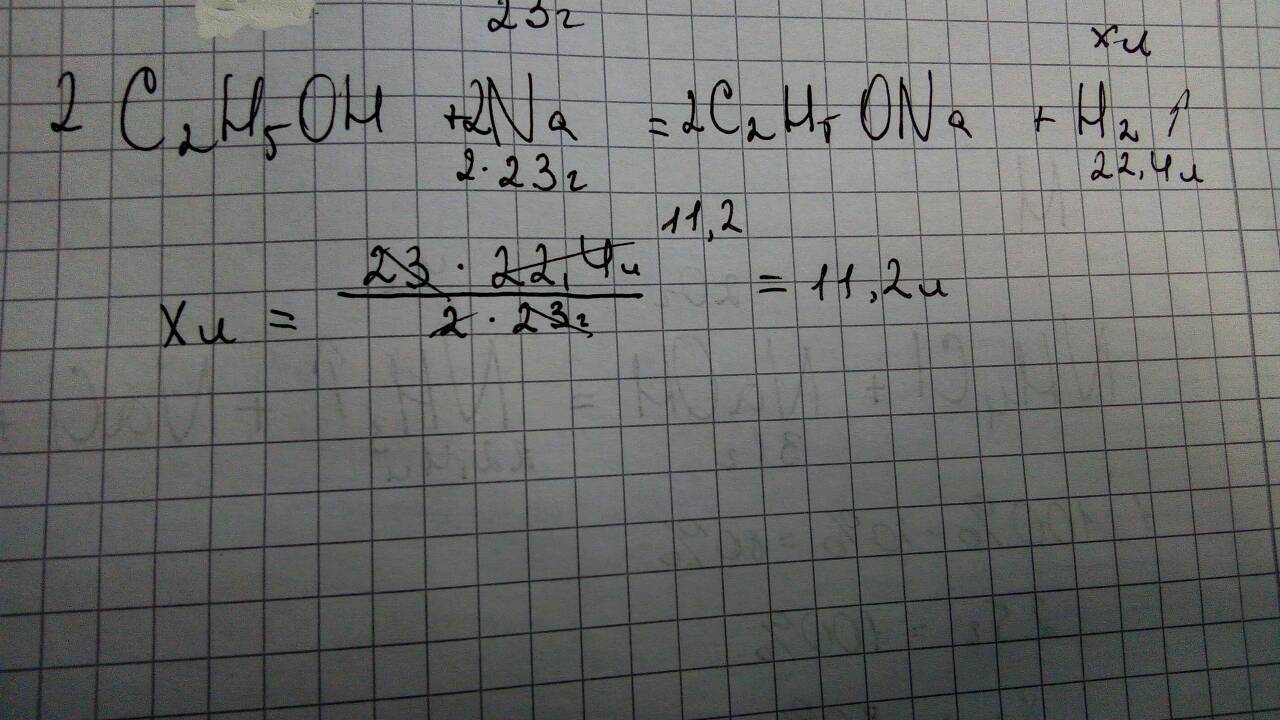 23г
хл
2 C₂H₅OH +2Na =2C₂H₅ONa + H₂↑
2·23г 22,4л
11,2
Xл = 23 · 22,4л / 2 · 23г = 11,2л